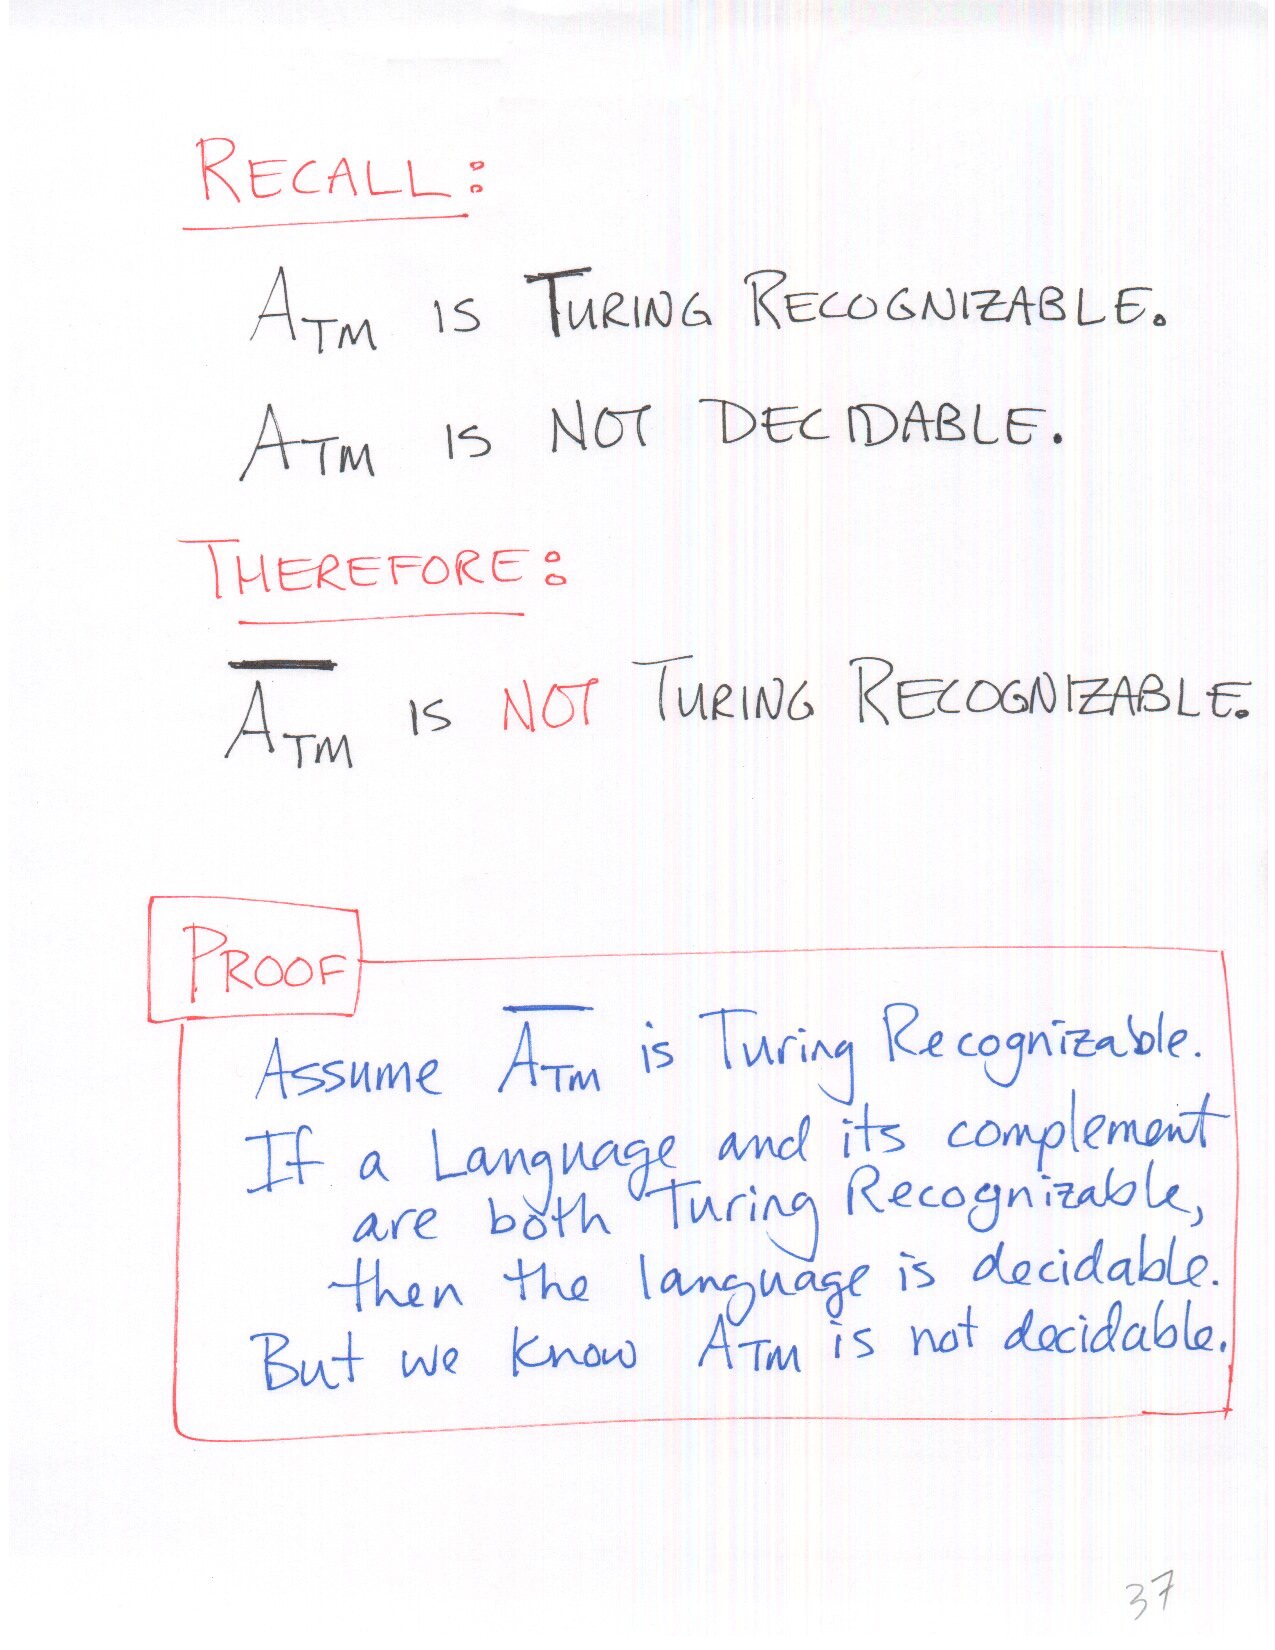 RECALL:
A_TM IS TURING RECOGNIZABLE.
A_TM IS NOT DECIDABLE.
THEREFORE:
A̅_TM IS NOT TURING RECOGNIZABLE.
PROOF
Assume A̅_TM is Turing Recognizable.
If a Language and its complement
are both Turing Recognizable,
then the language is decidable.
But we know A_TM is not decidable.
37